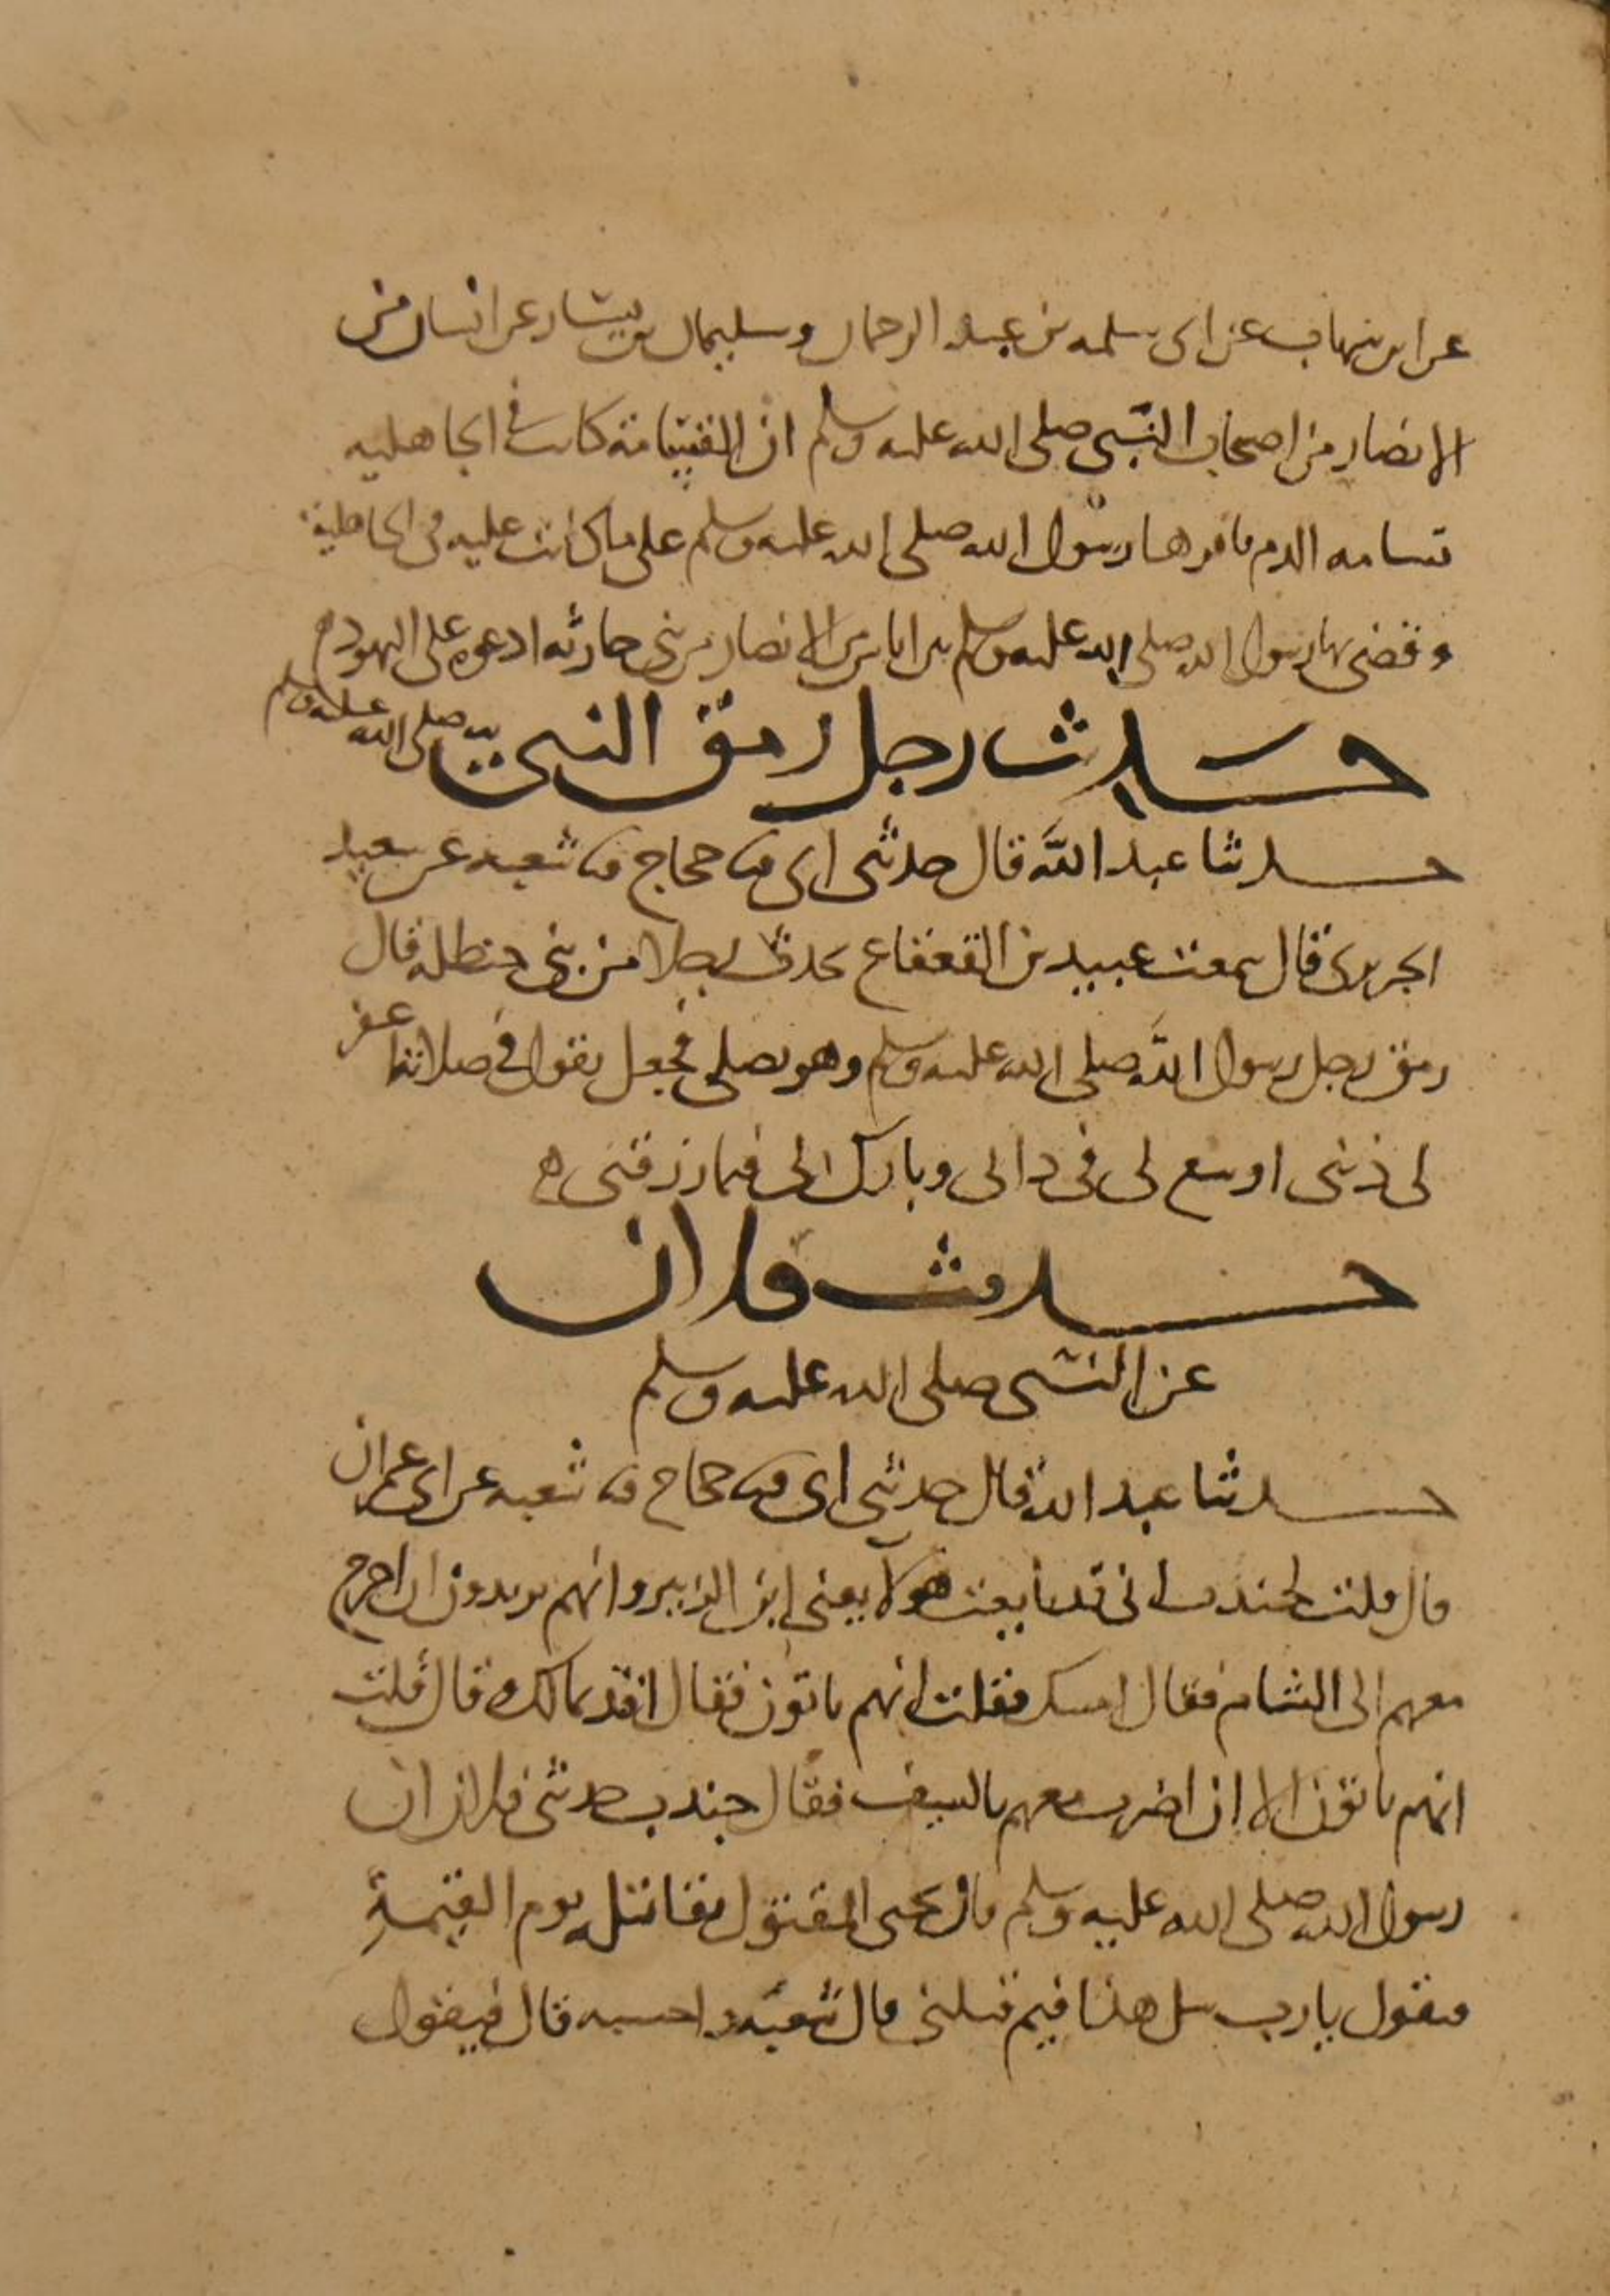 عن ابن شهاب عن ابى سلمه بن عبد الرحمان وسليمان بن يسار عن انسان من
الانصار من اصحاب النبى صلى الله عليه وسلم ان القسامة كانت فى الجاهليه
قسامه الدم فاقرها رسول الله صلى الله عليه وسلم على ما كانت عليه فى الجاهلية
وقضى بها رسول الله صلى الله عليه وسلم بين اناس من الانصار من بنى حارثه ادعوه على اليهود ه
حديث رجل رمق النبى صلى الله عليه وسلم
حدثنا عبد الله قال حدثنى ابى ثنا حجاج ثنا شعبه عن سعيد
الجريرى قال سمعت عبيد بن القعقاع يحدث رجلا من بنى حنظله قال
رمق رجل رسول الله صلى الله عليه وسلم وهو يصلى فجعل يقول فى صلاته اغفر
لى ذنبى اوسع لى فى دارى وبارك لى فيما رزقتنى ه
حديث فلان
عن النبى صلى الله عليه وسلم
حدثنا عبد الله قال حدثنى ابى ثنا حجاج ثنا شعبه عن ابى عمران
قال قلت لجندب انى قد بايعت هولا يعنى ابن الزبير وانهم يريدون ان اخرج
معهم الى الشام فقال امسك فقلت انهم يابون فقال افتد بمالك قال قلت
انهم يابون الا ان اضرب معهم بالسيف فقال جندب حدثنى فلان ان
رسول الله صلى الله عليه وسلم قال يجى المقتول بقاتله يوم القيمة
فيقول يا رب سل هذا فيم قتلنى قال شعبه واحسبه قال فيقول